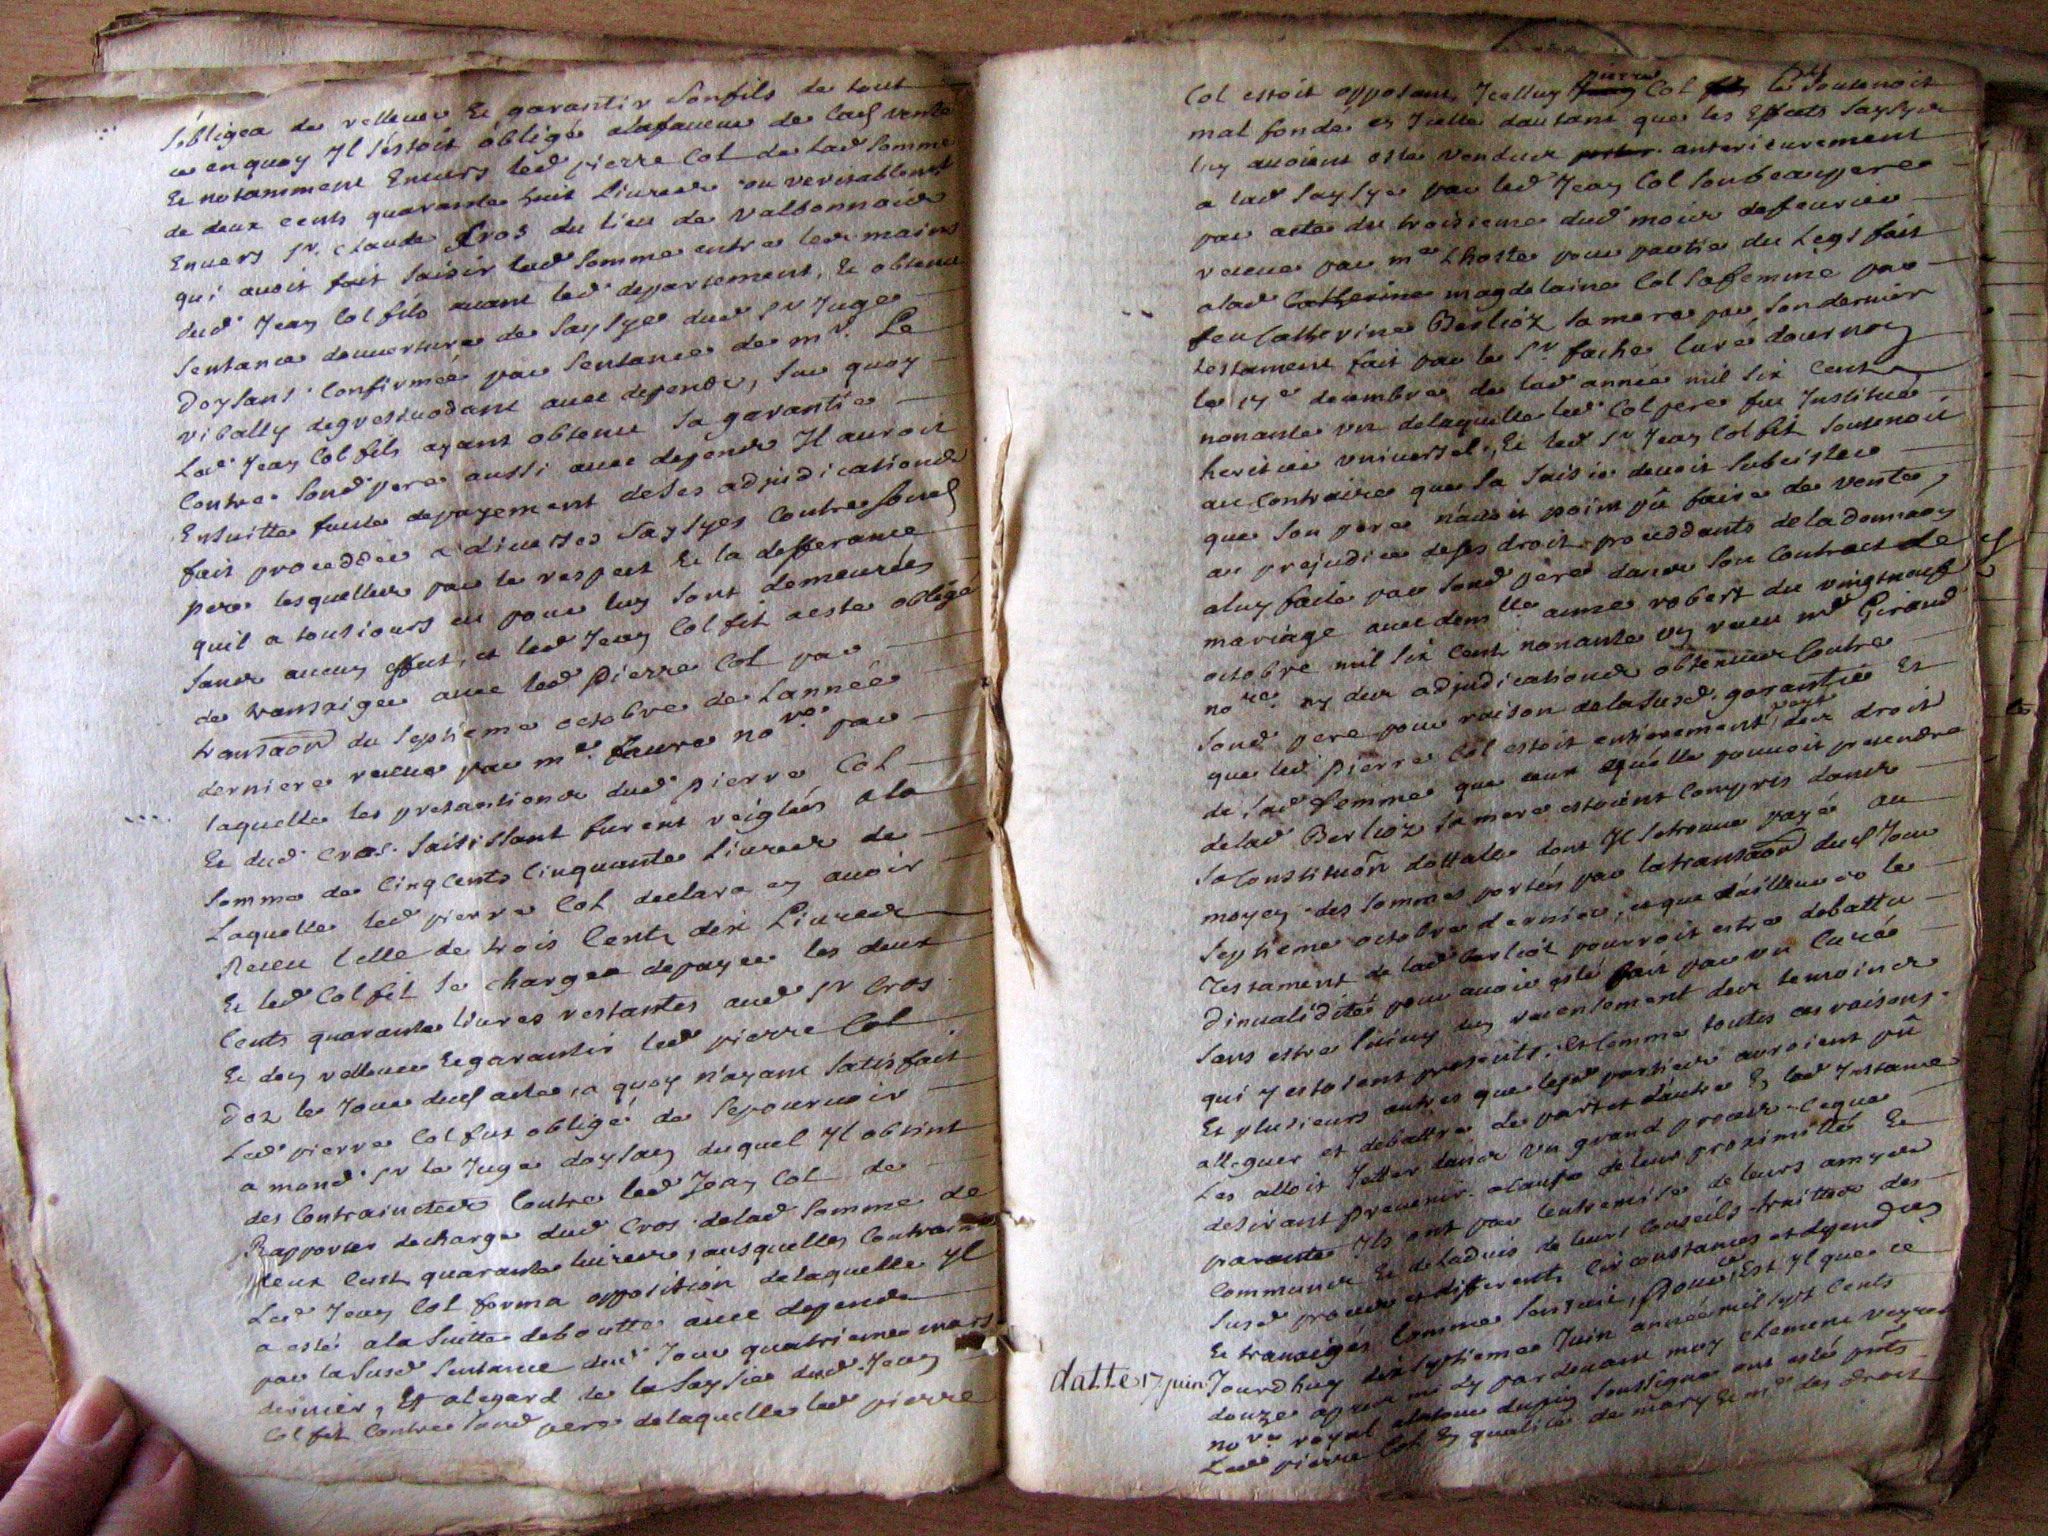 s'obligea de rellever Et garantir sonfils de tout
ce enquoy Il s'estoit obligé alafaveur de lad vente
Et notamment Envers led pierre Col de lad somme
de deux cents quarante huit Livres ou veritablement
Envers sr. Claude Cros du lieu de valbonnois
qui avoit fait saisir lad somme entre les mains
dud Jean Col fils avant led departement, Et obtenu
sentance douverture de saysye dud sr Juge
Doysans confirmée par sentance de mr. Le
vibally degresivodant avec depends, sur quoy
Led Jean Col fils ayant obtenu sa garantie
Contre sond pere aussi avec depends Il auroit
Ensuitte faute depayement deses adjudications
fait procedder a diverses saysyes Contre sond
pere lesquelles par le respect Et la defferance
quil a tousiours eu pour luy sont demeurées
sans aucun effect, et led Jean Col fils aesté obligé
de transiger avec led Pierre Col par
transaon du septieme octobre de Lannée
derniere receue par me. faure nore. par
laquelle les pretantions dud pierre Col
Et dud Cros saisissant furent reiglées a la
somme de Cinqcents Cinquante Livres de
Laquelle led pierre Col declara en avoir
Receu Celle de trois Cents dix Livres
Et led Col fils se charger depayer les deux
Cents quarante livres restantes aud sr Cros
Et den rellever Et garantir led pierre Col
Dez le Jour dud acte, a quoy n'ayant satisfait
Led pierre Col fut obligé de sepourvoir
a mond sr le Juge doysan duquel Il obtint
des Contrainctes Contre led Jean Col de
Rapporter decharge dud Cros delad somme de
deux Cent quarante livres, ausquelles Contrainctes
Led Jean Col forma opposition delaquelle Il
a esté ala suitte deboutté avec depends
par la susd sentance dud Jour quatrieme mars
dernier, Et alegard de la saysie dud Jean
Col fils Contre sond pere delaquelle led pierre
Col estoit opposant, Icelluy pierre Col le soutenoit
mal fondé en Icelle dautant que les Effects saysys
luy avoient esté vendus anterieurement
a lad saysye par led Jean Col sonbeaupere
par acte du troisieme dud mois defeurier
receue par me Lhoste pour partie du Legs fait
alad Catherine magdelaine Col safemme par
feu Catherine Berlioz sa mere par son dernier
testament fait par le sr. fache Curé dournon
le 17e decembre de lad année mil six Cent
nonante un delaquelle led Col pere fut Institué
heritier universel, Et led sr Jean Col fils soutenoit
au Contraire que la saisie devoit subcister
que son pere n'avoit point pû faire de vente
au prejudice deses droits proceddants dela donnaon
aluy faite par sond pere dans son Contract de
mariage avec demlle anne robert du vingtneuf
octobre mil six Cent nonante un receu me Giraud
nore. ny des adjudications obtenues Contre
sond pere pour raison delasusd. garantie Et
que led Pierre Col estoit entierement payé des droit
de sad femme que ceux quelle pouvoit pretendre
delad Berlioz sa mere estoient Compris dans
sa Constituon dottalle dont Il setrouve payé au
moyen des sommes portées par latransaon dud Jour
septieme octobre dernier, et que d'ailleurs le
Testament de lad berlioz pourroit estre debattu
d'invalidité pour avoir esté fait par un Curée
sans estre suivy du recensement des temoins
qui y estoient presents. Et Comme toutes ces raisons
Et plusieurs autres que lesd parties auroient pû
alleguer et debattre de part et d'autre En lad Instance
Les alloit Jetter dans Un grand procès Ceque
desirant prevenir acause de leur proximitté Et
parante Ils ont par lentremise de leurs amys
Communs Et deladvis de leurs Conseils traitter des
susd procès et differents Circonstances et dependces
Et transigés Comme sensuit, Pource Est Il que ce
Jourdhuy dix septieme Juin année mil sept Cents
datte 17 juin
douze apres midy pardevant moy clement veyret
nore royal soussigné ont esté pnts
Led pierre Col En qualité de mary Et me des droit